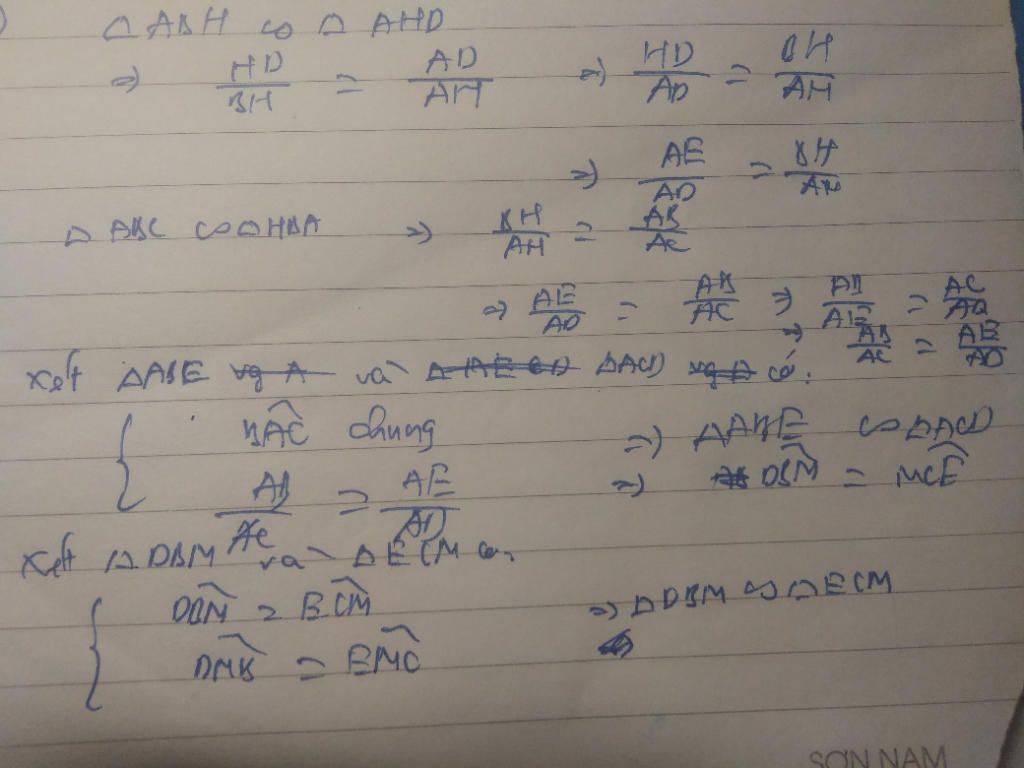 △ ABH ∽ △ AHD
=> HD/BH = AD/AH => HD/AD = BH/AH
=> AE/AD = BH/AH
△ ABC ∽ △HBA => BH/AH = AB/AC
=> AE/AD = AB/AC => AB/AE = AC/AD
=> AB/AC = AE/AD
Xét △ABE và △ACD có:
{ BAC chung => △ABE ∽ △ACD
AB/AC = AE/AD => DBM = MCE
Xét △DBM và △ECM có:
{ DBM = ECM => △DBM ∽ △ECM
DMB = EMC
SƠN NAM